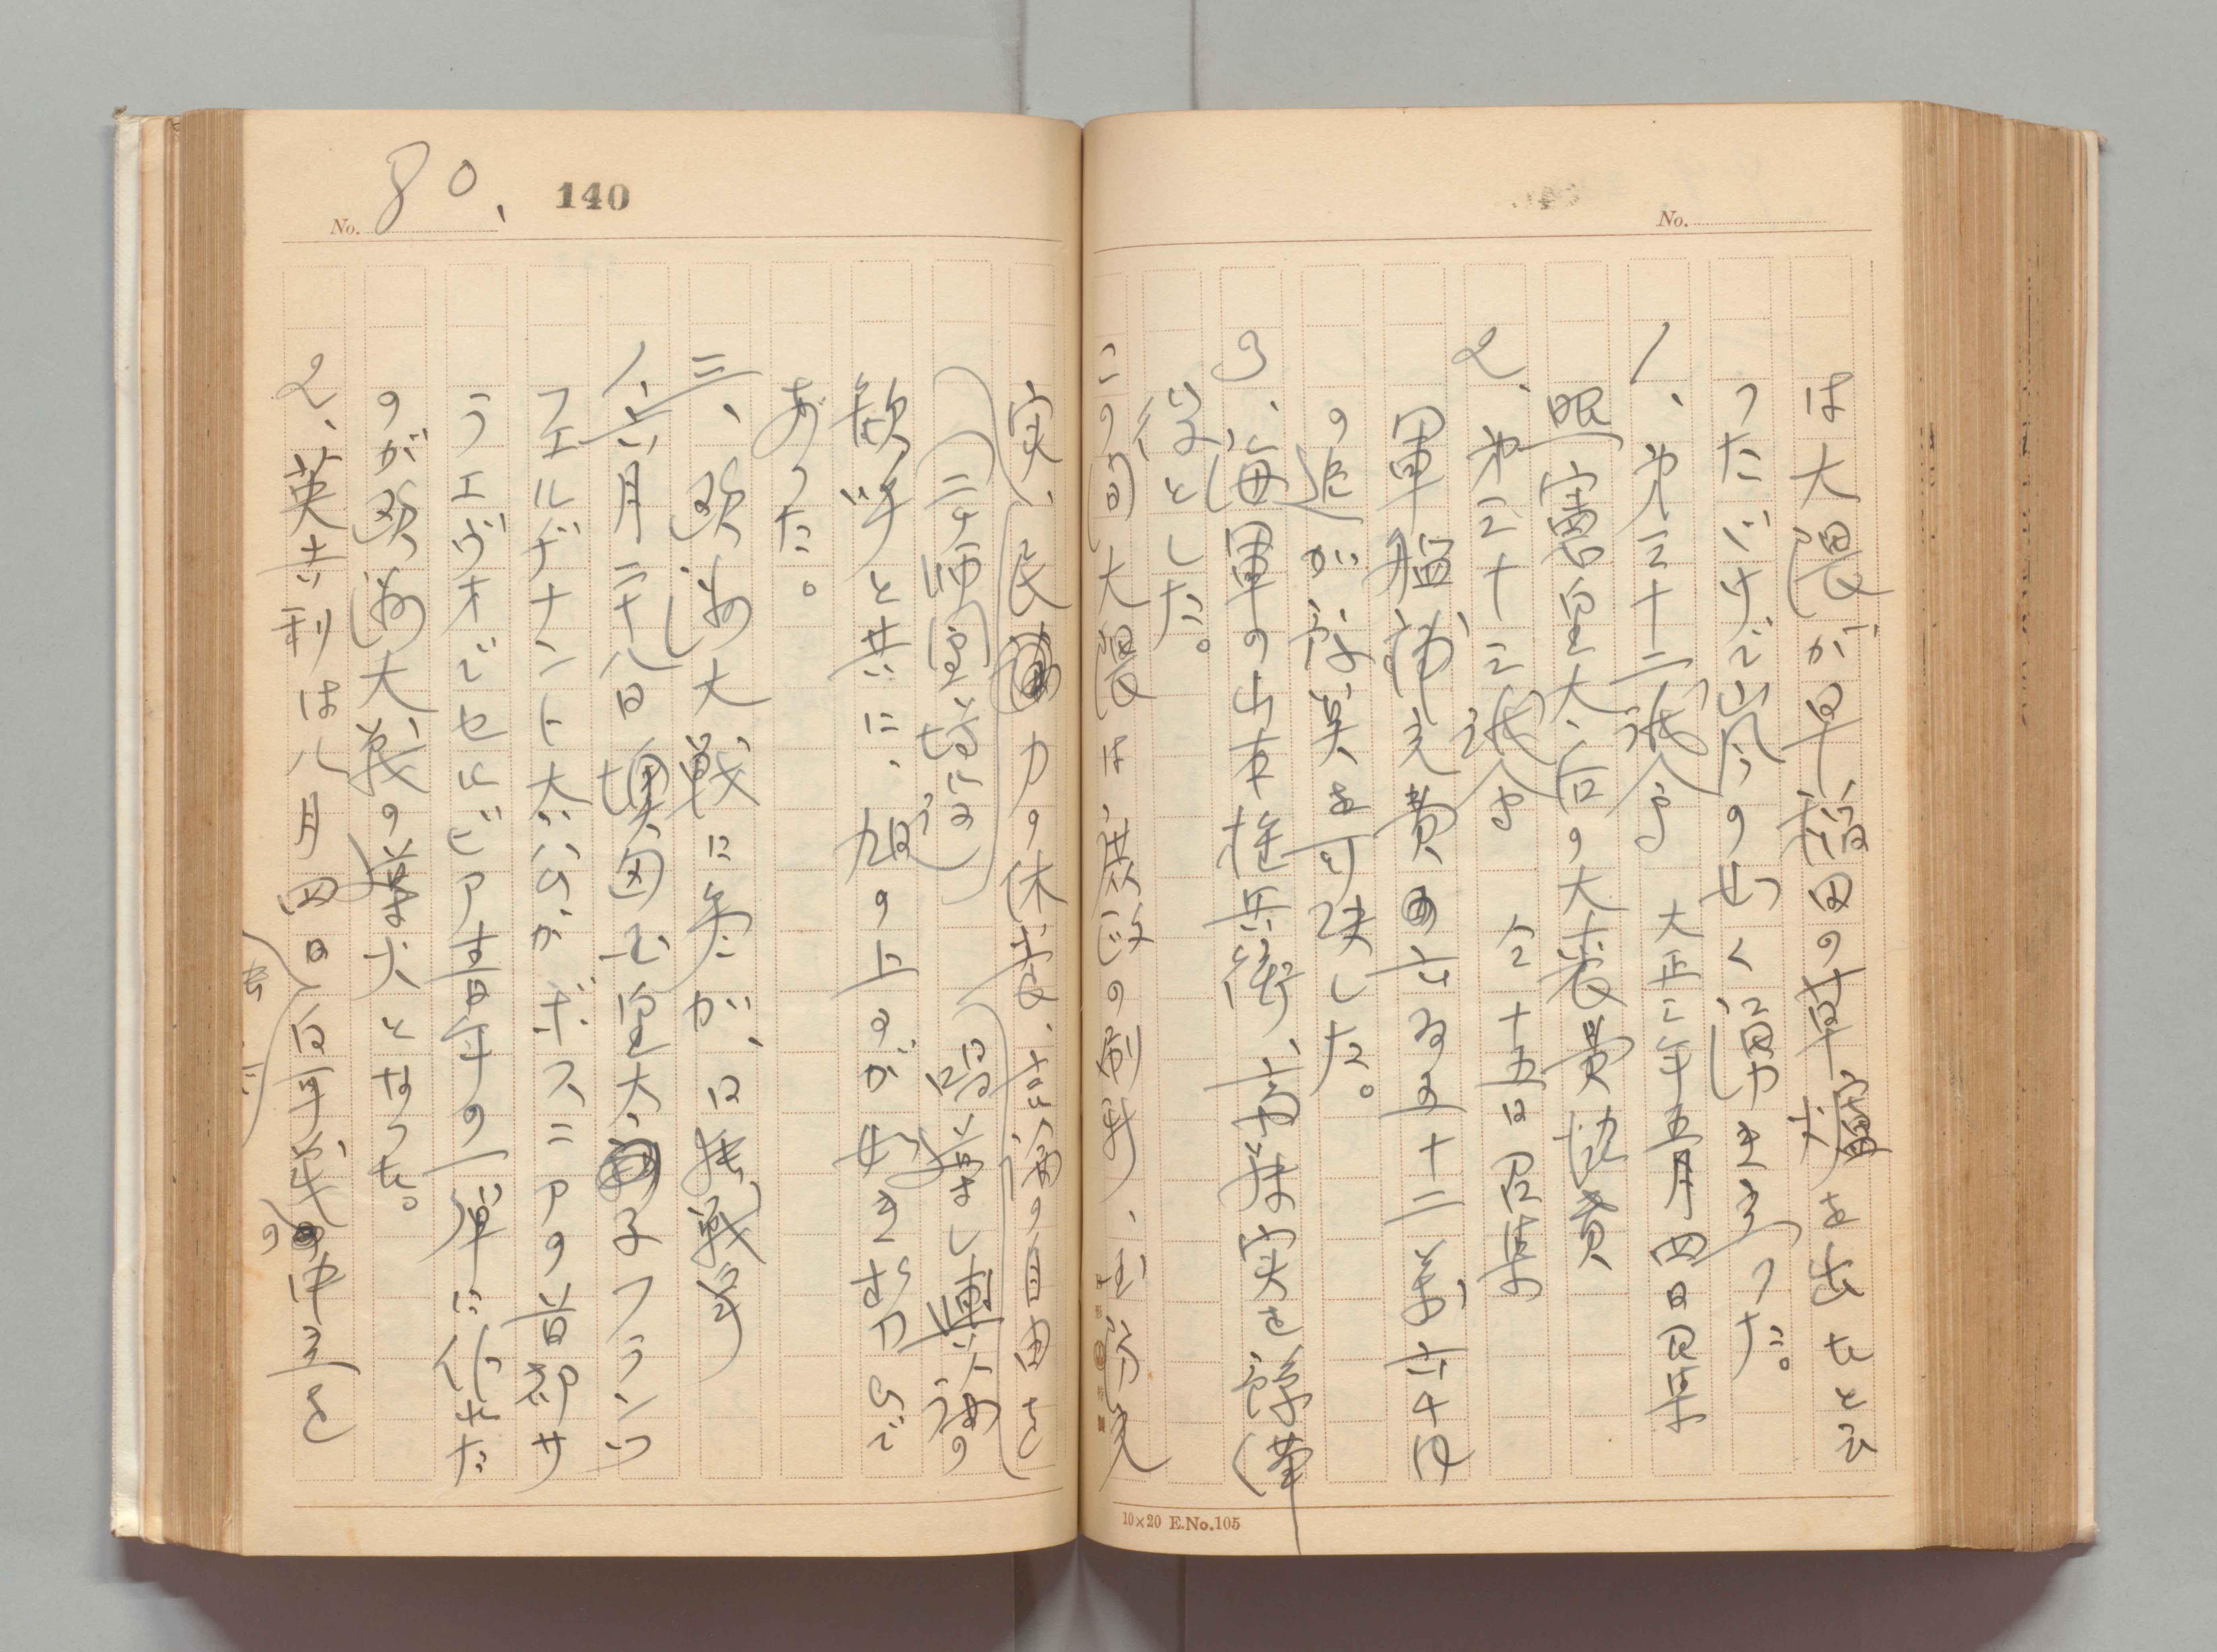 No.
は大隈が早稲田の草廬を出たと云
つただけで嵐の如く湧き立つた。
1、第三十二議会 大正三年五月四日召集
昭憲皇太后の大喪費協賛
2、第三十三議会 仝十五日召集
軍艦補充費六百五十二萬六千円
の追加予算を可決した。
3、海軍の山本権兵衛、斎藤実を予(後)備
役とした。
この間大隈は庶政の刷新、国防充
10×20 E.No.105
No. 80、 140
実、民力の休養、言論の自由を
(二ヶ師団増師) 唱導し輿論の
歓呼と共に、旭の上るが如き勢ひで
あつた。
三、欧洲大戦に參加、日独戦争
1、六月二十八日墺匈国皇太子フランツ
フェルヂナント大公がボスニアの首都サ
ラエヴオでセルビア青年の一弾に仆れた
のが欧洲大戦の導火となつた。
2、英吉利は八月四日白耳義の中立を